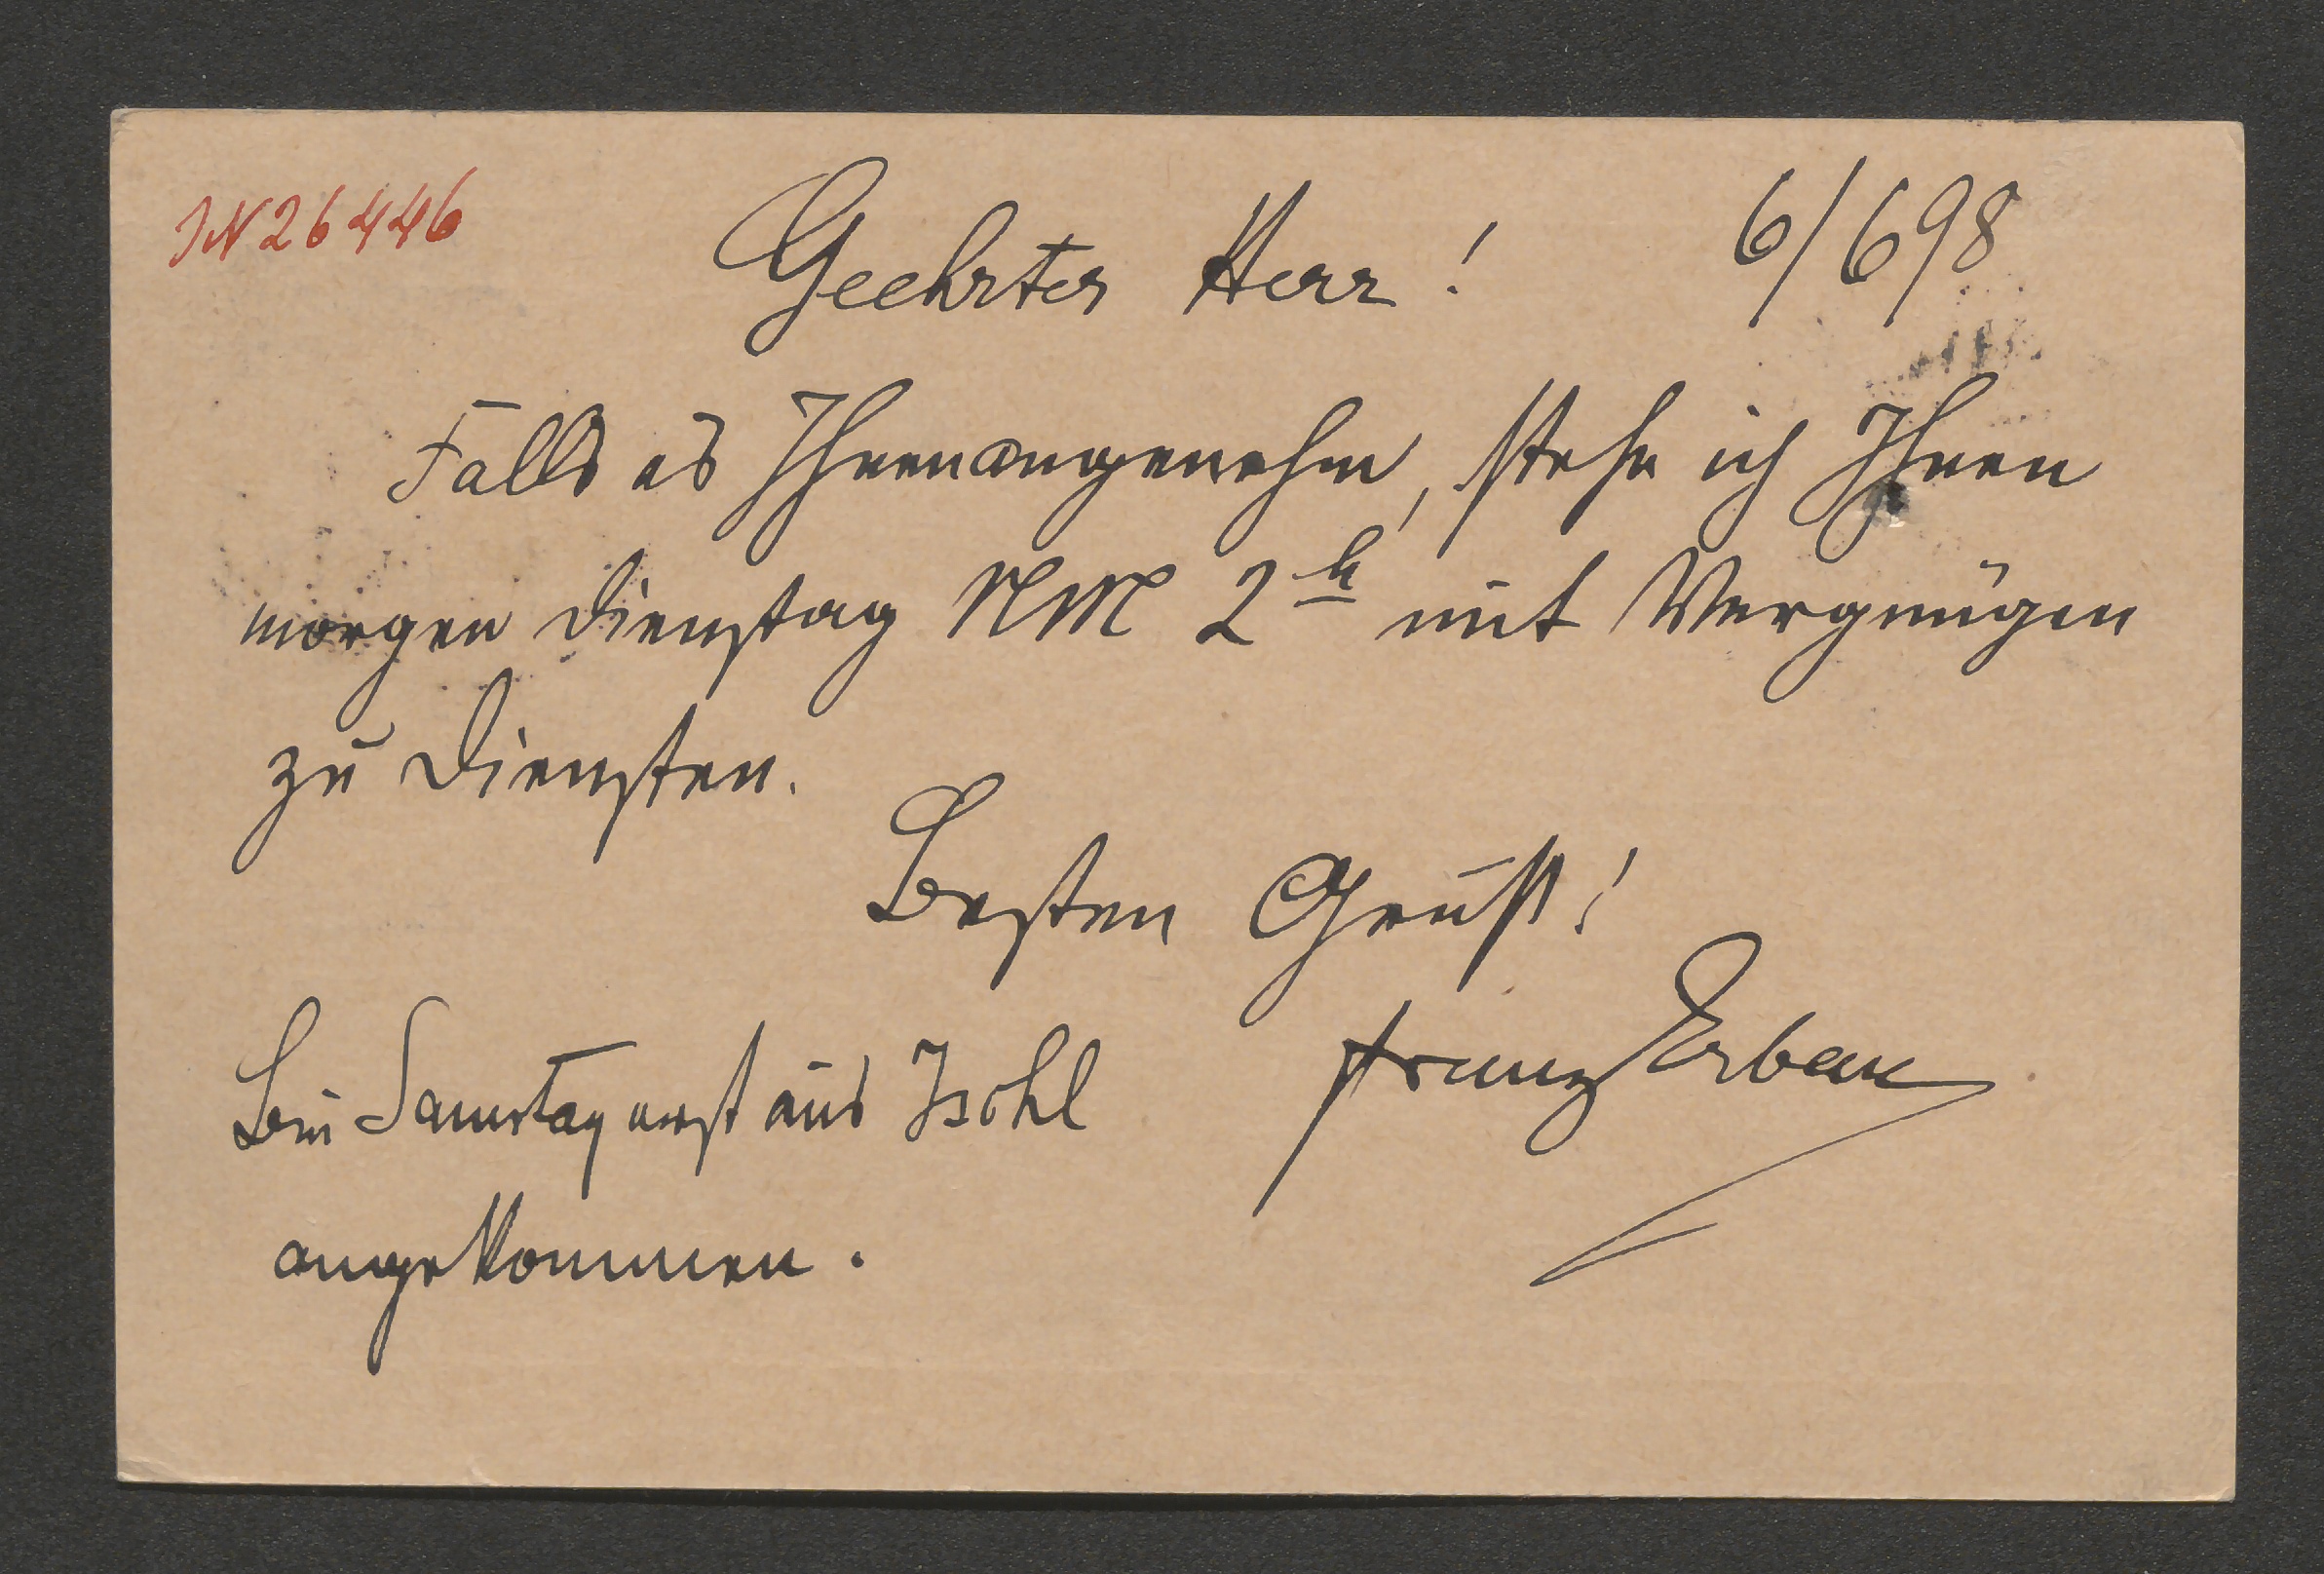 IN 26446
Geehrter Herr! 6/6 98
Falls es Ihnen angenehm, stehe ich Ihnen
morgen Dienstag NM 2h mit Vergnügen
zu Diensten.
Besten Gruß!
Franz Erban
Bin Samstag erst aus Ischl
angekommen.